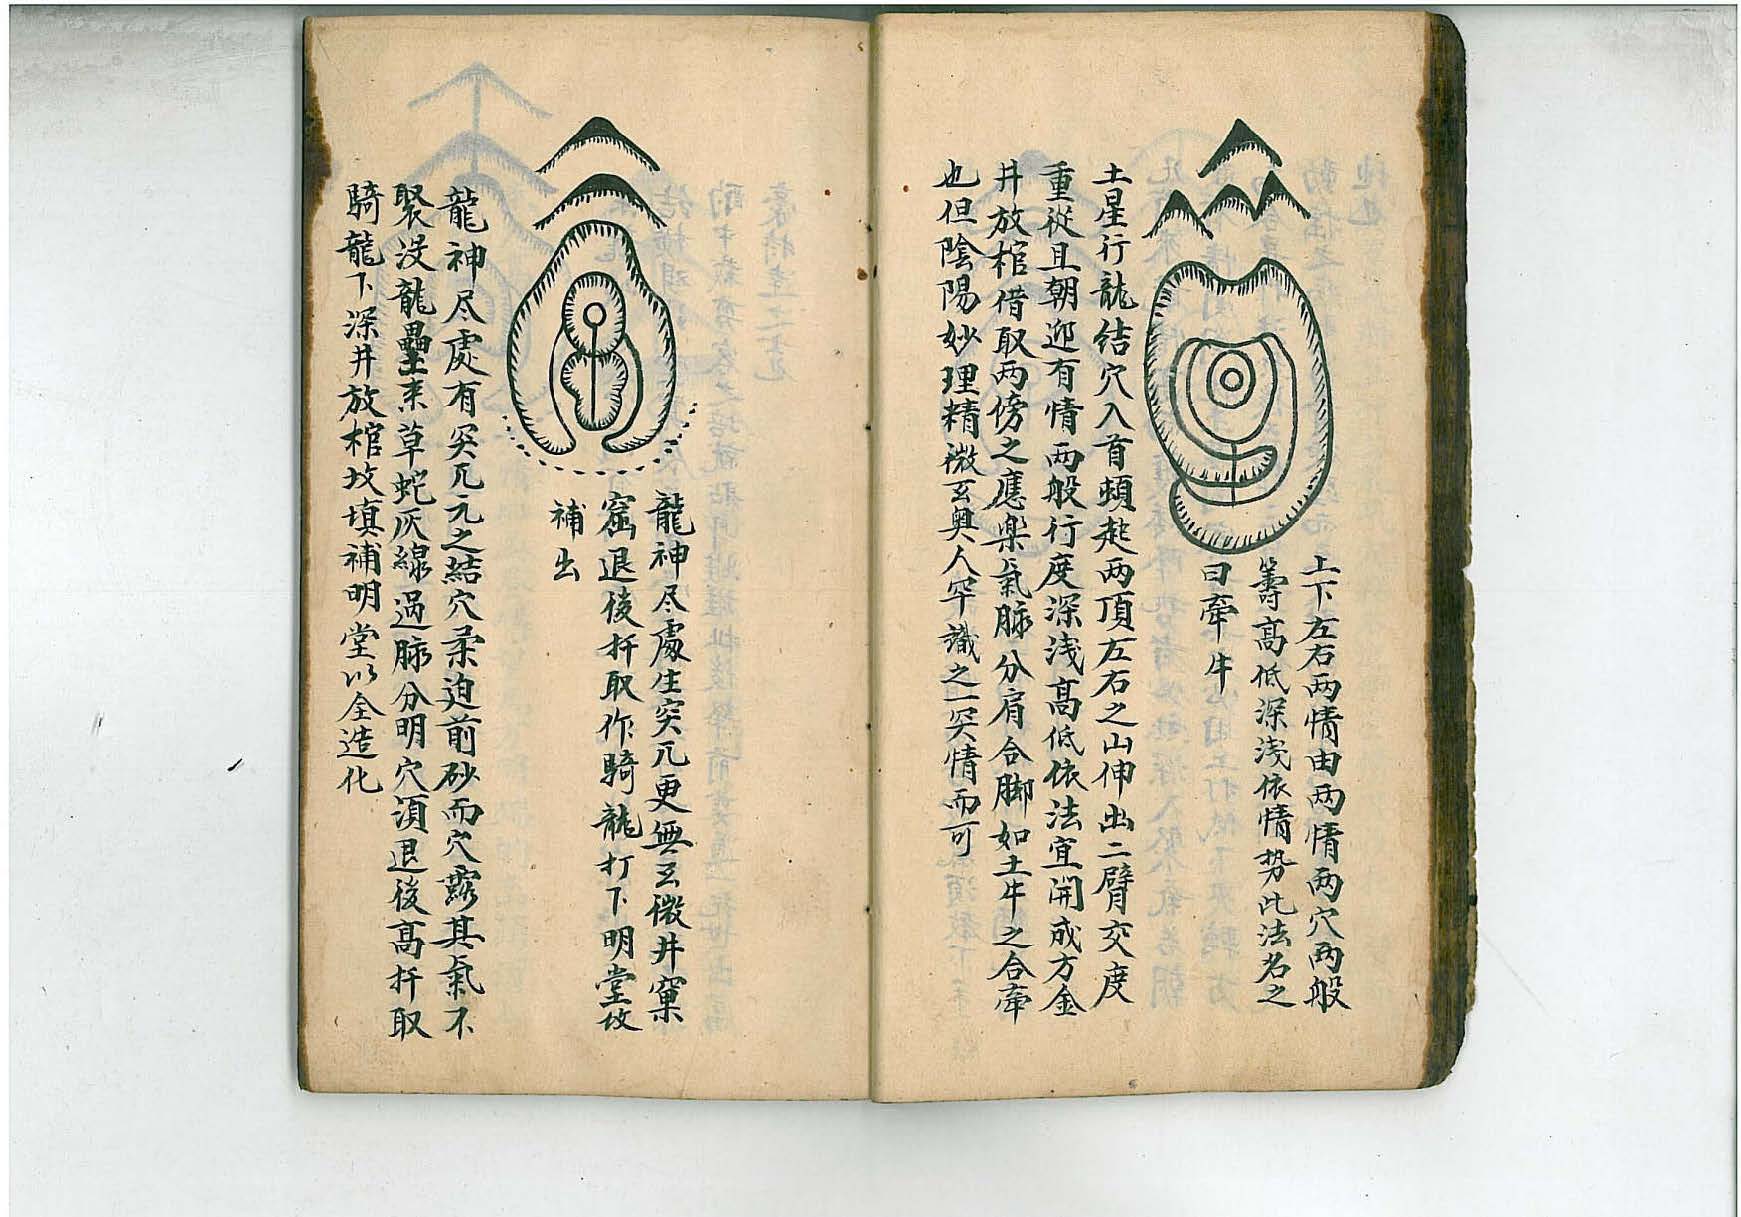 上下左右两情由两情两穴两般
籌高低深浅依情势此法名之
曰牽牛
土星行龍结穴入首頓起两頂左右之山伸出二臂交度
重從且朝迎有情两般行度深浅高低依法宜開成方金
井放棺借取两傍之應樂氣脉分肩合脚如土牛之合牽
也但陰陽妙理精微玄奥人罕識之一突情而可
龍神尽處生突兀更無玄微井窠
窟退後扦取作騎龍打下明堂坟
補出
龍神尽處有突兀元之结穴柔迫前砂而穴露其氣不
聚没龍壘来草蛇灰線過脉分明穴須退後高扦取
騎龍下深井放棺坟填補明堂以全造化